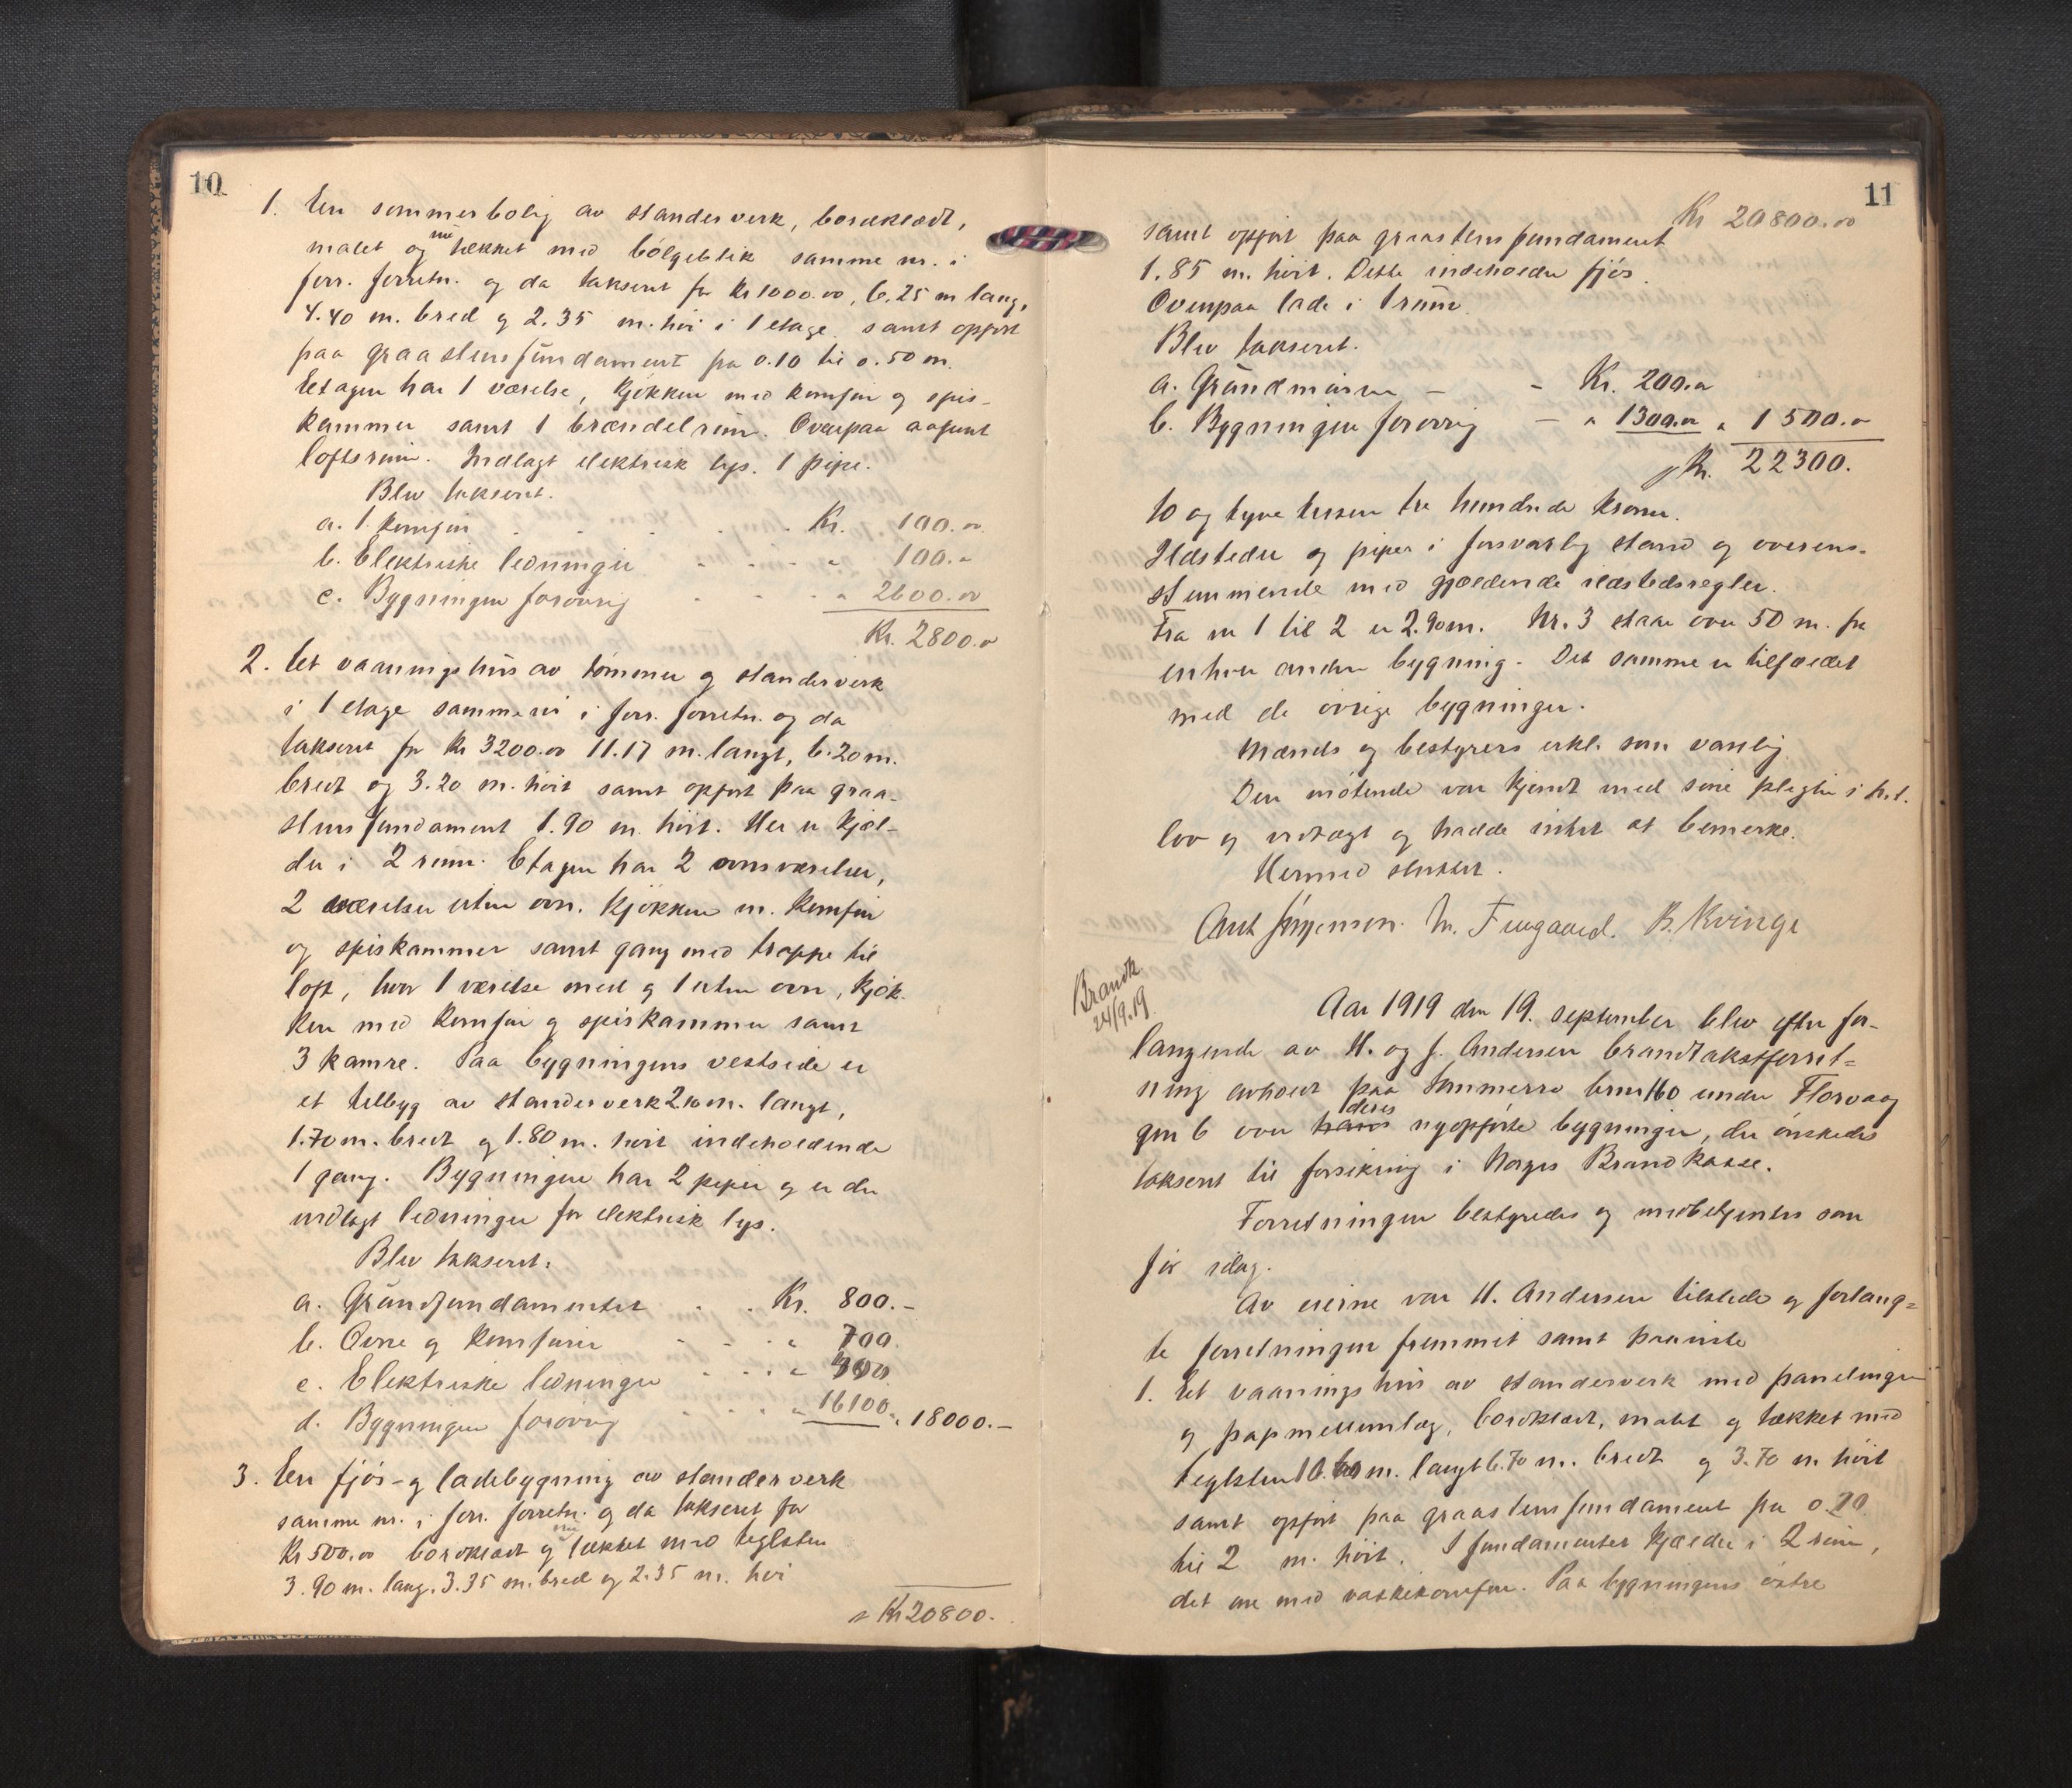 10
1. En sommerbolig av standerverk, bordklædt,
malet og nu tækket med bølgeblik samme nr. i
forr. forretn. og da takseret for Kr 1000.00, 6.25 m lang,
4.40 m. bred og 2.35 m. høi i 1 etage samt opført
paa graastensfundament fra 0.10 til 0.50 m.
Etagen har 1 værelse, kjøkken med komfur og spis-
kammer samt 1 brændelrum. Ovenpaa aapent
loftsrum. Indlagt elektrisk lys. 1 pipe.
Blev takseret.
a. 1 komfur Kr. 100.00
b. Elektriske ledninger " 100.-
c. Bygningen forøvrig " 2600.00
Kr. 2800.00
2. Et vaaningshus av tømmer og standerverk
i 1 etage samme nr i forr. forretn. og da
takseret for Kr 3200.00 11.17 m. langt, 6.20 m.
bredt og 3.20 m. høit samt opført paa graa-
stensfundament 1.90 m. høit. Her er kjæl-
der i 2 rum. Etagen har 2 ovnsværelser,
2 værelser uten ovn. Kjøkken m. komfur
og spiskammer samt gang med trappe til
loft, hvor 1 værelse med og 1 uten ovn, kjøk-
ken med komfur og spiskammer samt
3 kamre. Paa bygningens vestside er
et tilbyg av standerverk 2.10 m. langt,
1.70 m. bredt og 1.80 m. høit indeholdende
1 gang. Bygningen har 2 piper og er der
indlagt ledninger for elektrisk lys.
Blev takseret.
a. Grundfundamentet Kr. 800.-
b. Ovne og komfurer " 700.
c. Elektriske ledninger " 400
d. Bygningen forøvrig " 16100 " 18000.-
3. En fjøs- og ladebygning av standerverk
samme nr. i forr. forretn. og da takseret for
Kr 500.00 bordklædt og nu tækket med teglsten
3.90 m. lang, 3.35 m. bred og 2.35 m. høi
Kr 20800.-
11
Kr 20800.00
samt opført paa graastensfundament
1.85 m. høit. Dette indeholder fjøs.
Ovenpaa lade i 1 rum.
Blev takseret.
a. Grundmuren - - Kr. 200.00
b. Bygningen forøvrig - " 1300.00 " 1500.00
Kr. 22300.
to og tyve tusen tre hundrede kroner.
Ildsteder og piper i forsvarlig stand og overens-
stemmende med gjældende ildstedsregler.
Fra nr 1 til 2 er 2.90 m. Nr. 3 staar over 50 m. fra
enhver anden bygning. Det samme er tilfældet
med de øvrige bygninger.
Mænds og bestyrers erkl. som vanlig.
Den møtende var kjendt med sine pligter i h.t.
lov og vedtægt og hadde intet at bemerke.
Hermed sluttet.
Arnt Jørgensen. M. Furgaard. B. Kvinge
Brandk.
24/9.19.
Aar 1919 den 19. september blev efter for-
langende av H. og J. Andersen brandtakstforret-
ning avholdt paa Sommerro brnr 160 under Florvaag
gnr 6 over hans deres nyopførte bygninger, der ønskedes
takseret til forsikring i Norges Brandkasse.
Forretningen bestyredes og medbetjentes som
før idag.
Av eierne var H. Andersen tilstede og forlang-
te forretningen fremmet samt paaviste
1. Et vaaningshus av standerverk med panelinger
og papmellemlæg, bordklædt, malet og tækket med
teglsten m. langt 6.70 m. bredt og 3.70 m. høit
samt opført paa graastensfundament fra 0.70
til 2 m. høit. I fundamentet kjælder i 2 rum,
det ene med vaskekomfur. Paa bygningens østre